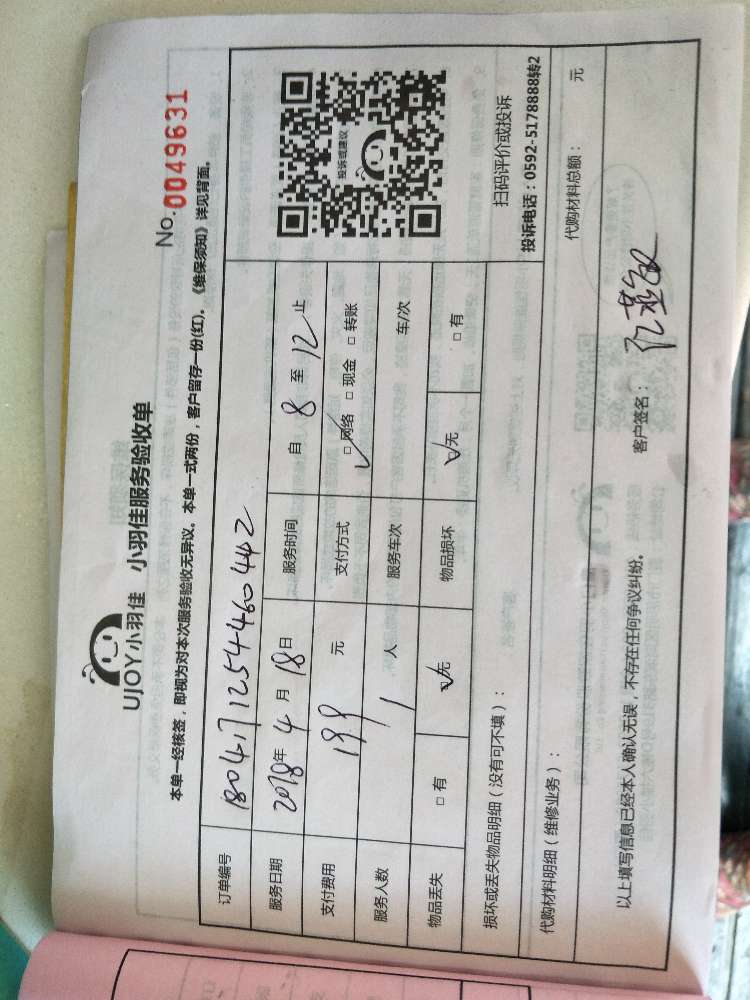 UJOY小羽佳 小羽佳服务验收单
No.0049631
本单一经核签，即视为对本次服务验收无异议。本单一式两份，客户留存一份(红)。《维保须知》详见背面。
订单编号 1804171254460442
服务日期 2018年4月18日 服务时间 自 8 至 12 止
支付费用 199 元 支付方式 ☑网络 □现金 □转账
服务人数 1 人 服务车次 车/次
物品丢失 □有 ☑无 物品损坏 ☑无 □有
投诉或建议
扫码评价或投诉
投诉电话：0592-5178888转2
损坏或丢失物品明细（没有可不填）：
代购材料明细（维修业务）： 代购材料总额： 元
以上填写信息已经本人确认无误，不存在任何争议纠纷。 客户签名：